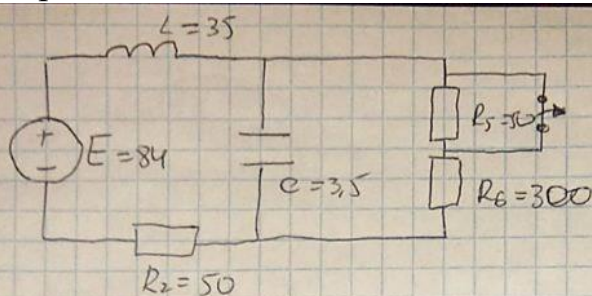 L=35
+
-
E=84
C=3,5
R5=50
R6=300
R2=50